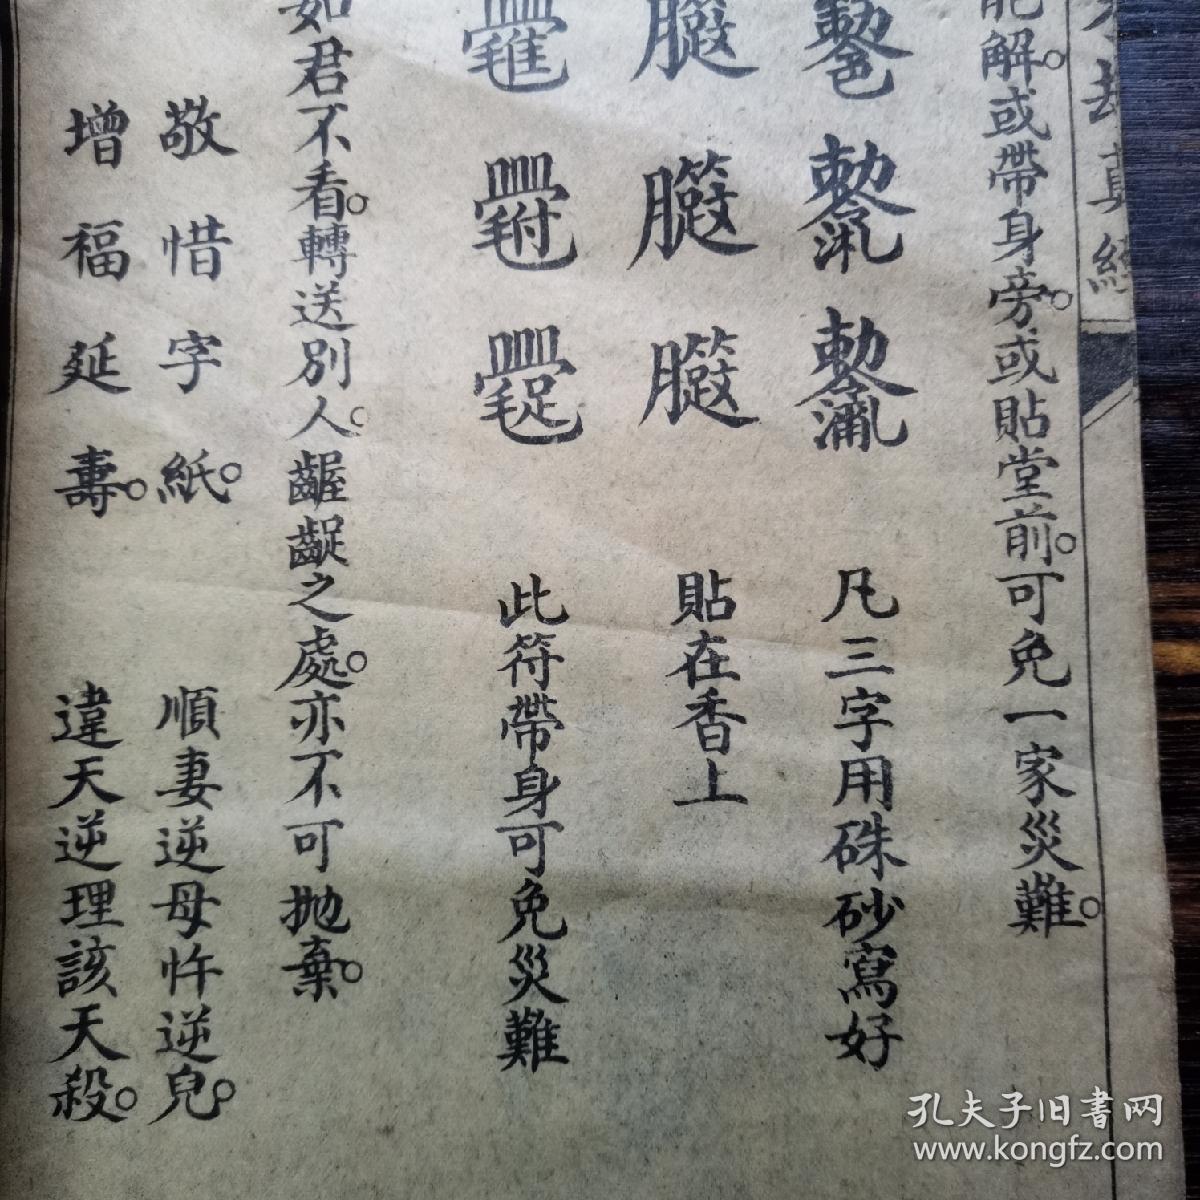 劫真經
能解。或帶身旁。或貼堂前。可免一家災難。
凡三字用硃砂寫好
貼在香上
此符帶身可免災難
如君不看。轉送別人。齷齪之處。亦不可拋棄。
敬惜字紙。
順妻逆母忤逆兒。
增福延壽。
違天逆理該天殺。
孔夫子旧書网
www.kongfz.com